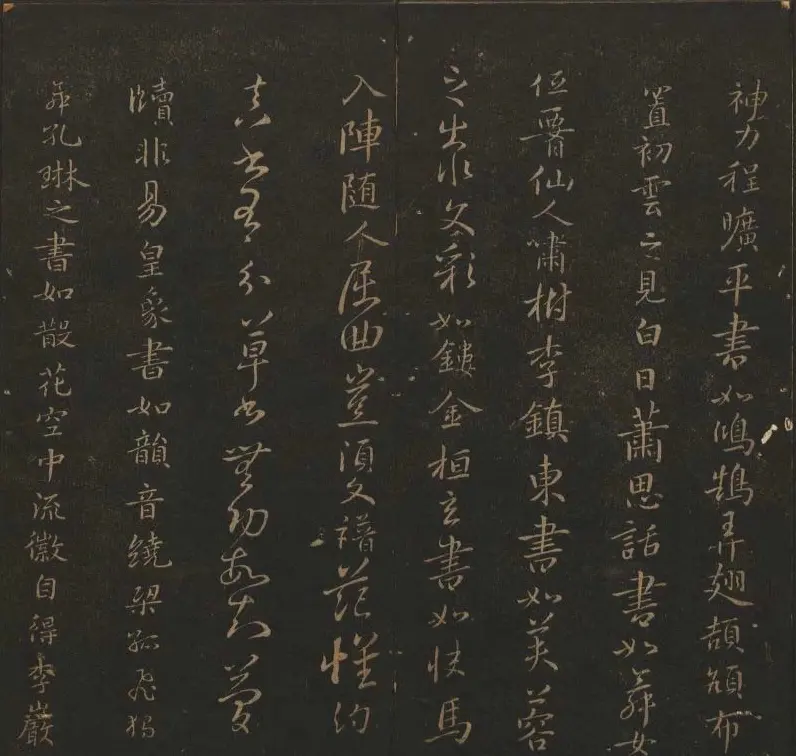 神力程曠平書如鴻鵠弄翅頡頏布
置初雲之見白日蕭思話書如舞女
低腰仙人嘯樹李鎮東書如芙蓉
之出水文彩如鏤金桓玄書如快馬
入陣随人屈曲豈須文譜范懷約
真書有分草書無功故知簡
牘非易皇象書如韻音繞梁孤飛獨
舞孔琳之書如散花空中流徽自得李巖